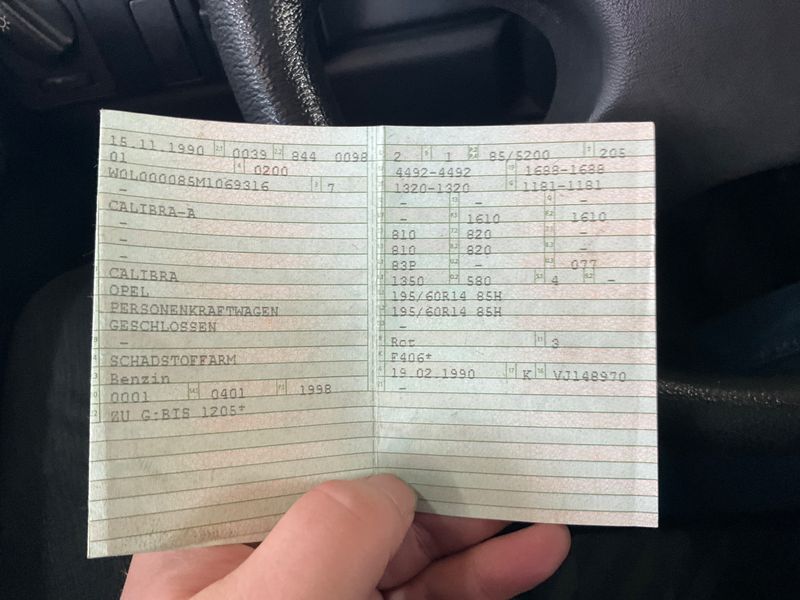 15.11.1990 0039 844 0098
01 0200
W0L000085M1069316 7
-
CALIBRA-A
-
-
-
CALIBRA
OPEL
PERSONENKRAFTWAGEN
GESCHLOSSEN
-
SCHADSTOFFARM
Benzin
0001 0401 1998
ZU G:BIS 1205*
2 1 85/5200 205
4492-4492 1688-1688
1320-1320 1181-1181
- - -
- 1610 1610
810 820 -
810 820 -
83P - 077
1350 580 4 -
195/60R14 85H
195/60R14 85H
-
Rot 3
F406*
19.02.1990 K VJ148970
-